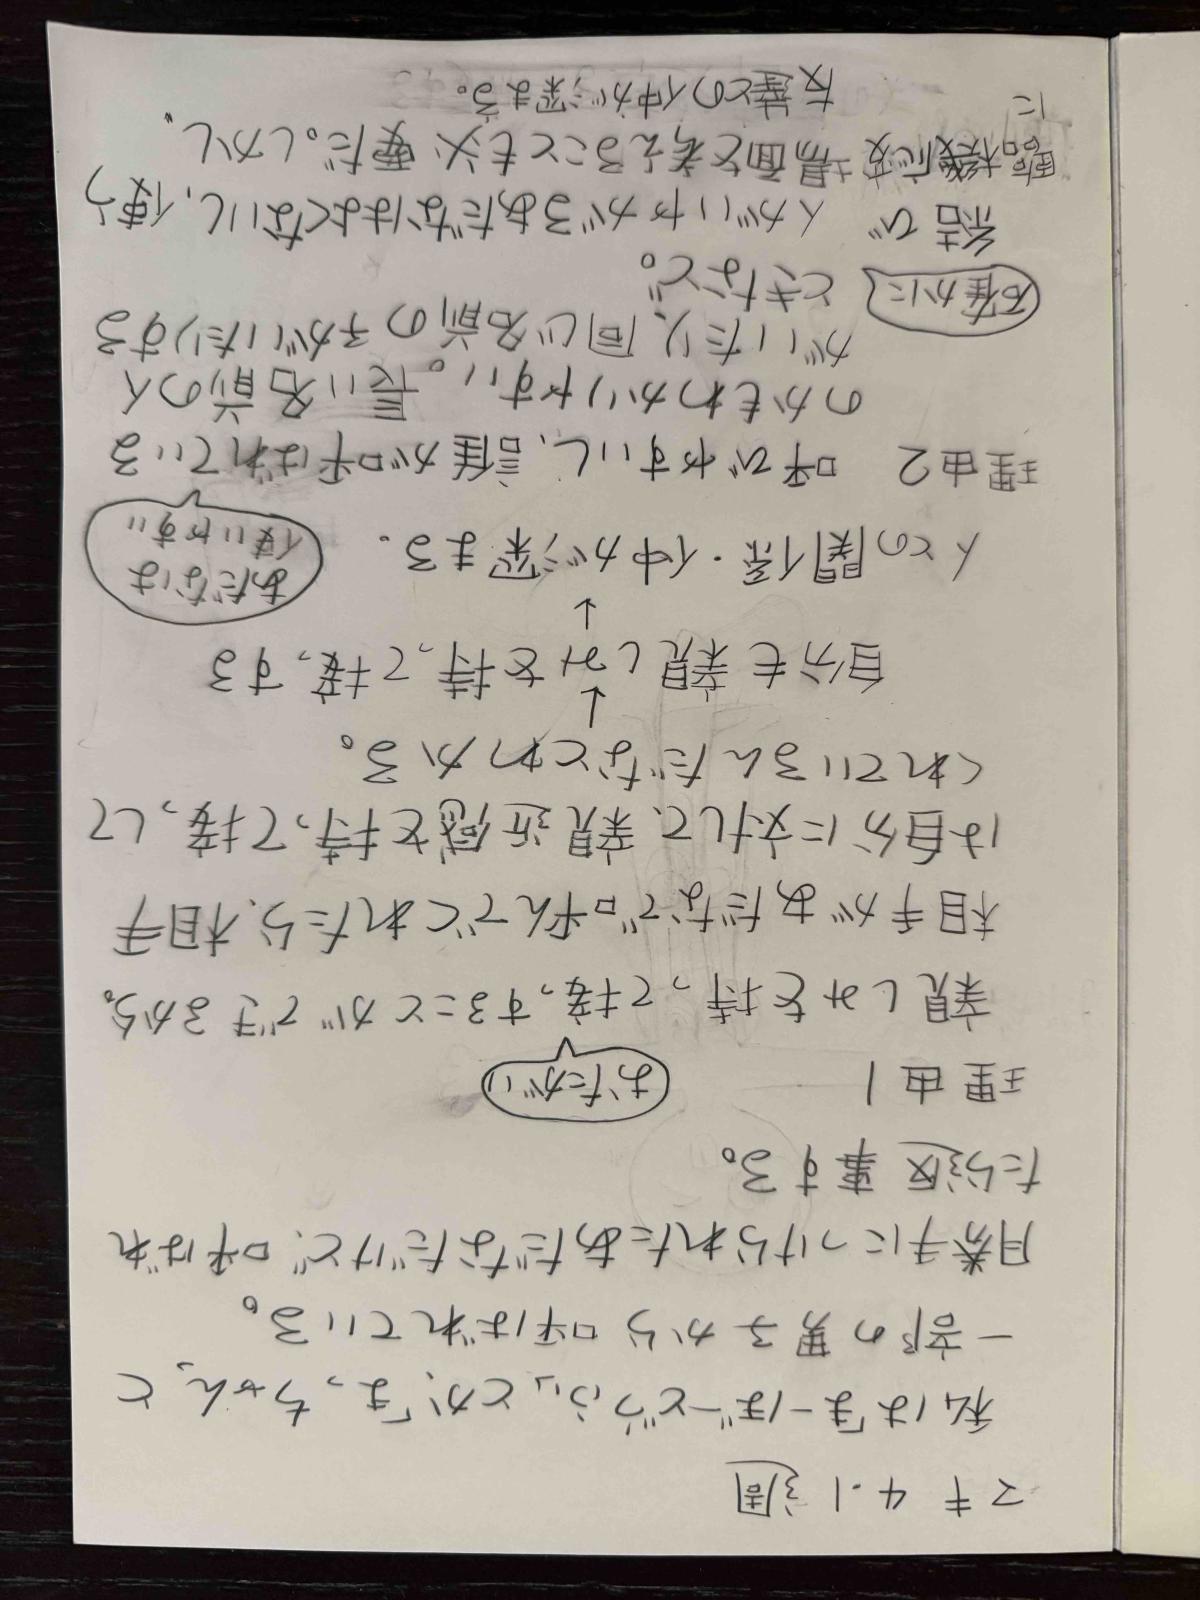 マキ 4.1週
私は「まーぼーどうふ」とか、「まっちゃん」と
一部の男子から呼ばれている。
勝手につけられたあだなだけど、呼ばれ
たら返事する。
理由1
おたがい
親しみを持って接することができるから。
相手があだなで呼んでくれたら、相手
は自分に対して、親近感を持って接して
くれているんだなとわかる。
↓
自分も親しみを持って接する
↓
人との関係・仲が深まる。
あだなは
使いやすい
理由2 呼びやすいし、誰が呼ばれている
のかもわかりやすい。長い名前の人
がいたり、同じ名前の子がいたりする
ときなど。
確かに
結び 人がいやがるあだなはよくないし、使う
臨機応変 場面を考えることも必要だ。しかし、
に
友達との仲が深まる。